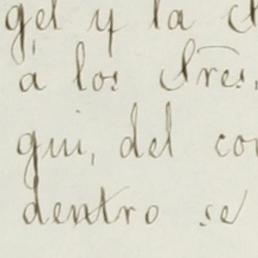 gel y la
á los Sres.
gui, del co
dentro se